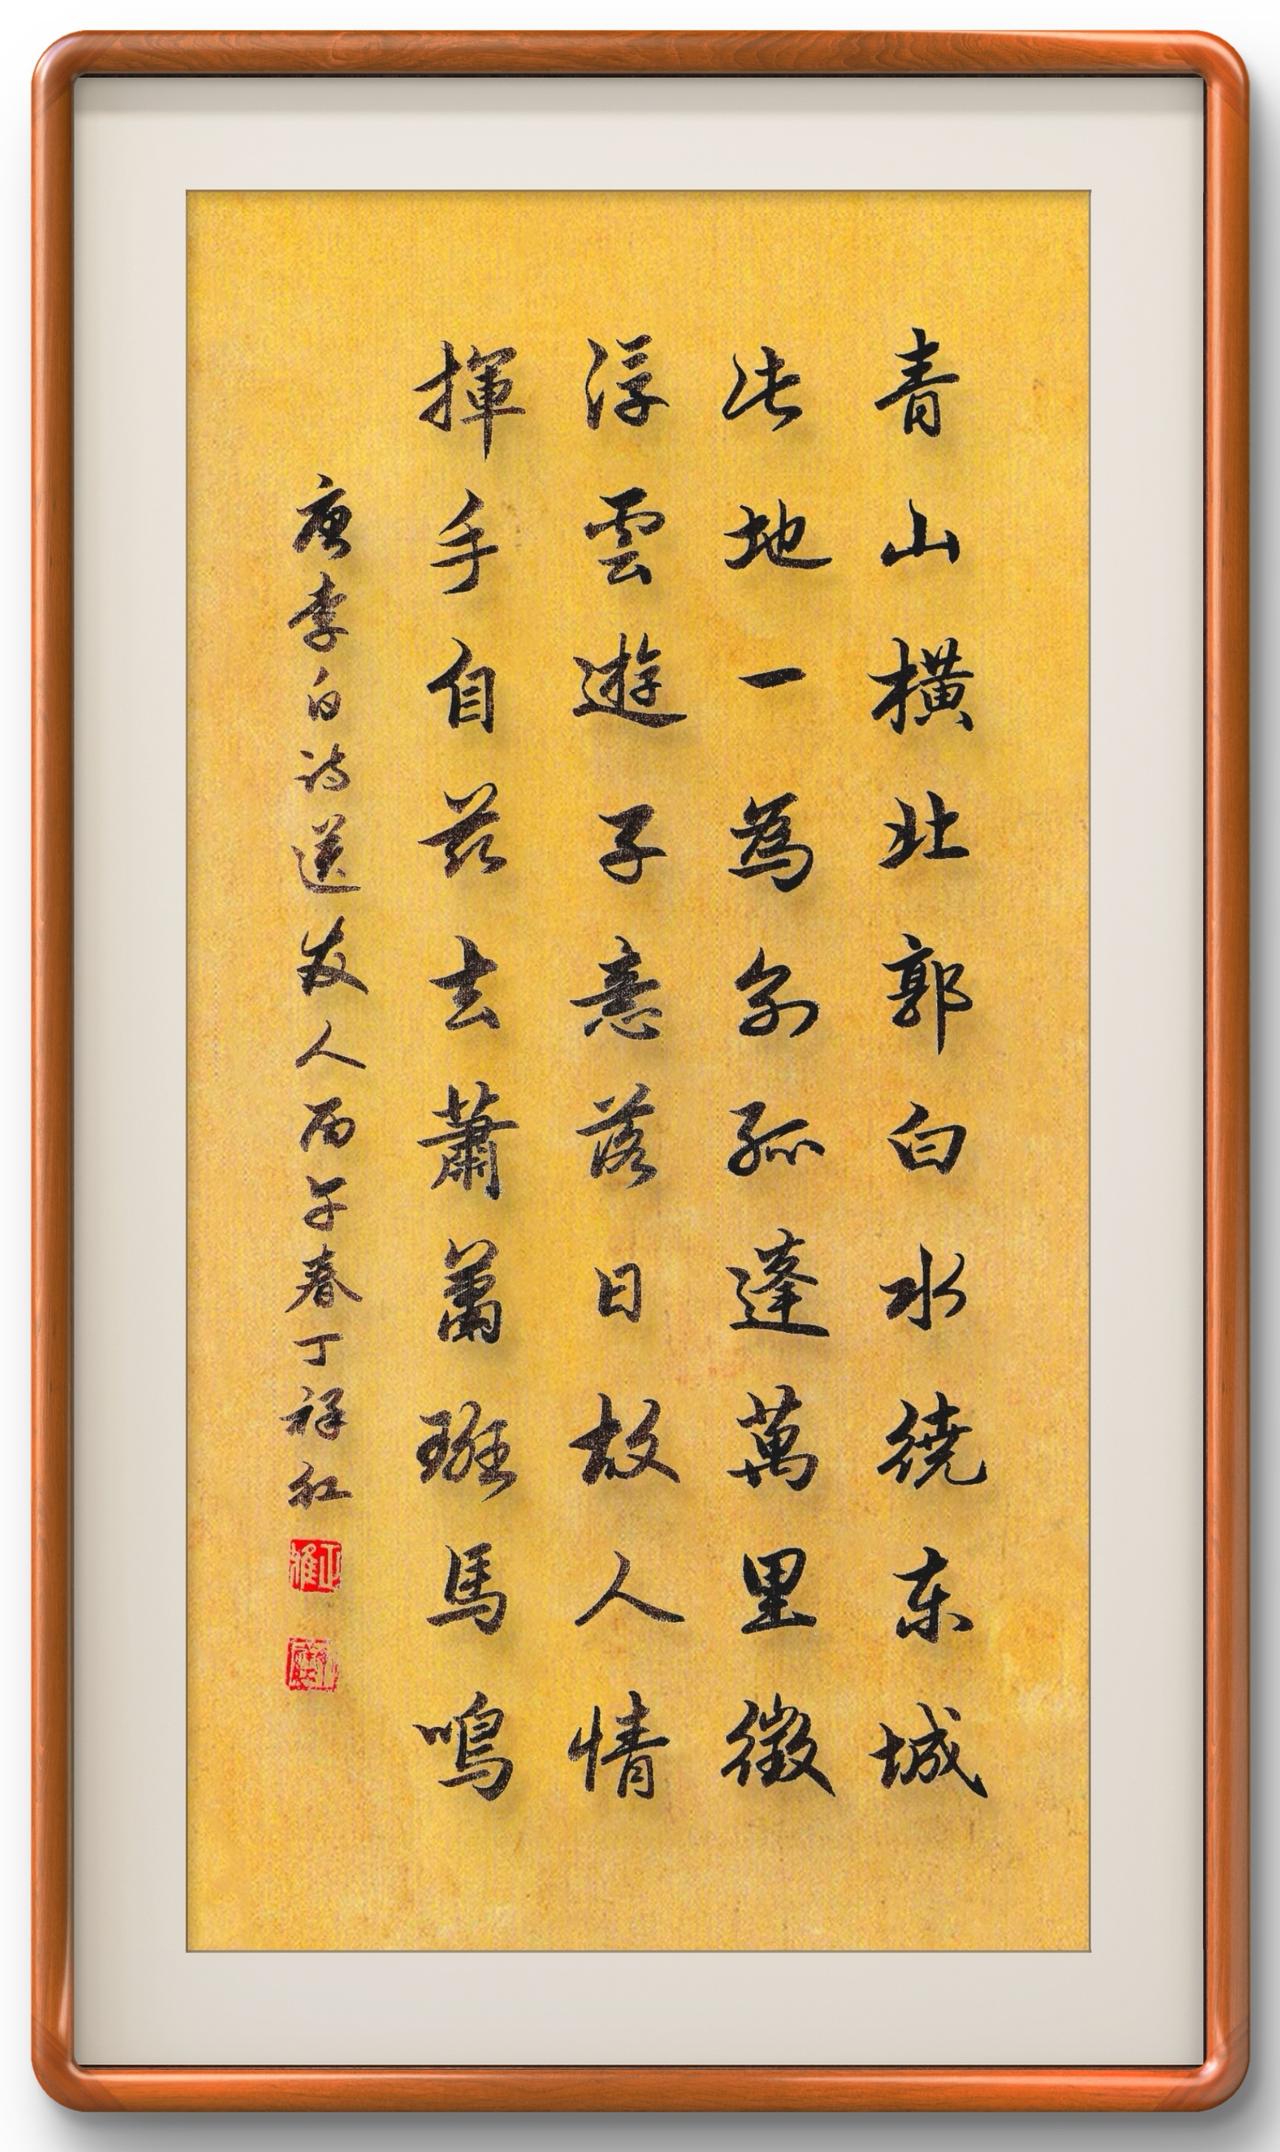 青山橫北郭白水绕东城
此地一為别孤蓬萬里徵
浮雲遊子意落日故人情
揮手自兹去蕭蕭班馬鳴
唐李白诗送友人丙午春丁祥红